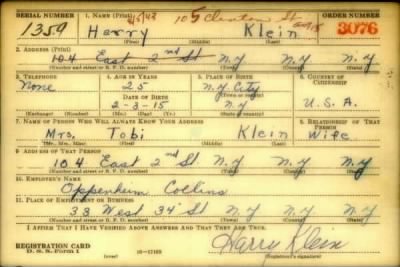 SERIAL NUMBER 1. NAME (Print) 105 Clinton St ORDER NUMBER
1359 Harry Klein 3076
(First) (Middle) (Last)
2. ADDRESS (Print)
104 East 2nd St N.Y N.Y N.Y
(Number and street or R. F. D. number) (Town) (County) (State)
3. TELEPHONE 4. AGE IN YEARS 5. PLACE OF BIRTH 6. COUNTRY OF CITIZENSHIP
None 25 N.Y City
DATE OF BIRTH (Town or county)
2-3-15 N.Y U.S.A.
(Exchange) (Number) (Mo.) (Day) (Yr.) (State or country)
7. NAME OF PERSON WHO WILL ALWAYS KNOW YOUR ADDRESS 8. RELATIONSHIP OF THAT PERSON
Mrs. Tobi Klein Wife
(Mr., Mrs., Miss) (First) (Middle) (Last)
9. ADDRESS OF THAT PERSON
104 East 2nd St. N.Y N.Y N.Y
(Number and street or R. F. D. number) (Town) (County) (State)
10. EMPLOYER'S NAME
Oppenheim Collins
11. PLACE OF EMPLOYMENT OR BUSINESS
33 West 34 St N.Y N.Y N.Y
(Number and street or R. F. D. number) (Town) (County) (State)
I AFFIRM THAT I HAVE VERIFIED ABOVE ANSWERS AND THAT THEY ARE TRUE.
REGISTRATION CARD
D. S. S. Form 1 (over) 16-17105 Harry Klein
(Registrant's signature)